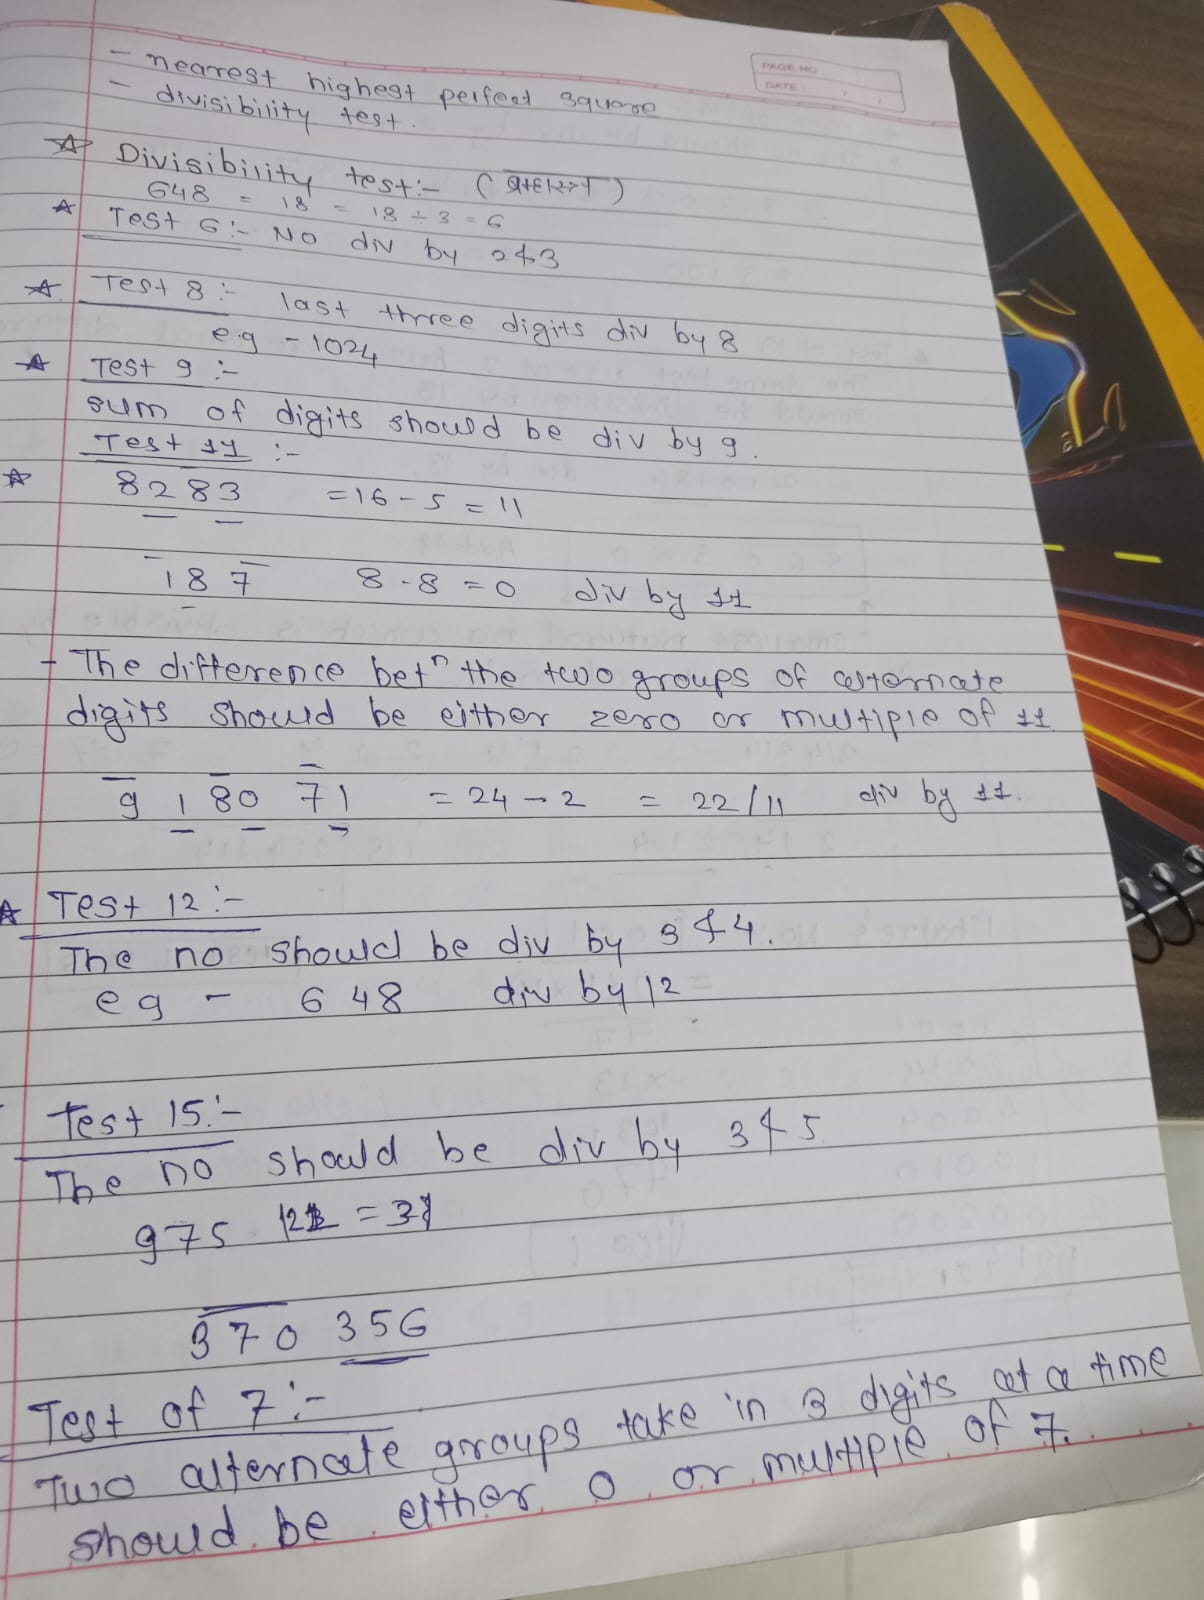 PAGE NO
DATE
- nearest highest perfect square
- divisibility test.
Divisibility test:- (
648 = 18 = 18 ÷ 3 = 6
Test 6:- No div by 2 & 3
Test 8:- last three digits div by 8
e.g - 1024
Test 9 :-
sum of digits should be div by 9.
Test 11 :-
8283 = 16 - 5 = 11
187 8 - 8 = 0 div by 11
- The difference betn the two groups of alternate
digits should be either zero or multiple of 11
918071 = 24 - 2 = 22/11 div by 11.
Test 12:-
The no should be div by 3 & 4.
eg - 648 div by 12
Test 15:-
The no should be div by 3 & 5
975
370 356
Test of 7:-
Two alternate groups take in 3 digits at a time
should be either 0 or multiple of 7.